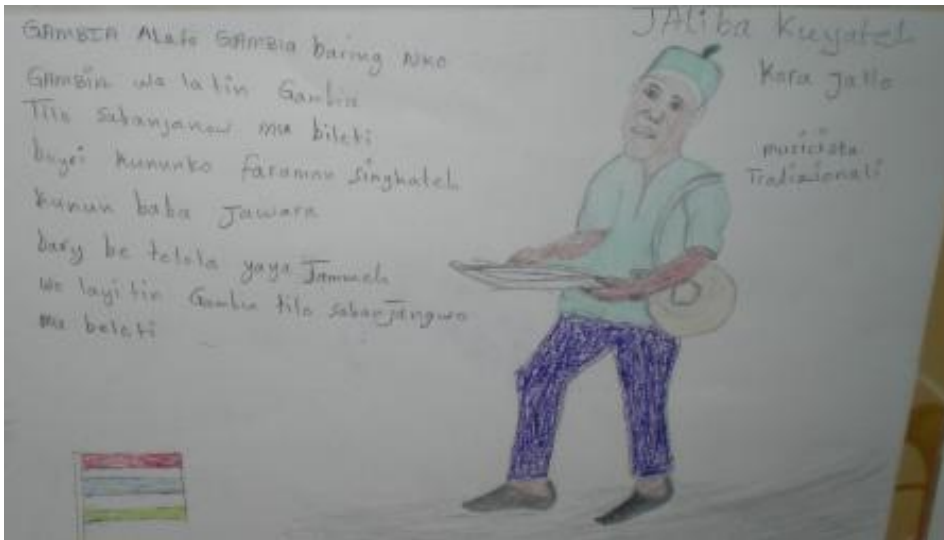 GAMBIA Alafo GAMBIA baring Nko
GAMBIA wo latin Gambia
Tilo sabanjanow mu bileti
kununko faramau singhateh
Kunun baba Jawara
bary be telola yaya Jammeh
We layi tin Gambia tilo sabanjangwo
mu beleti
JALiba Kuyateh
Kora Jallo
musicista
Tradizionali